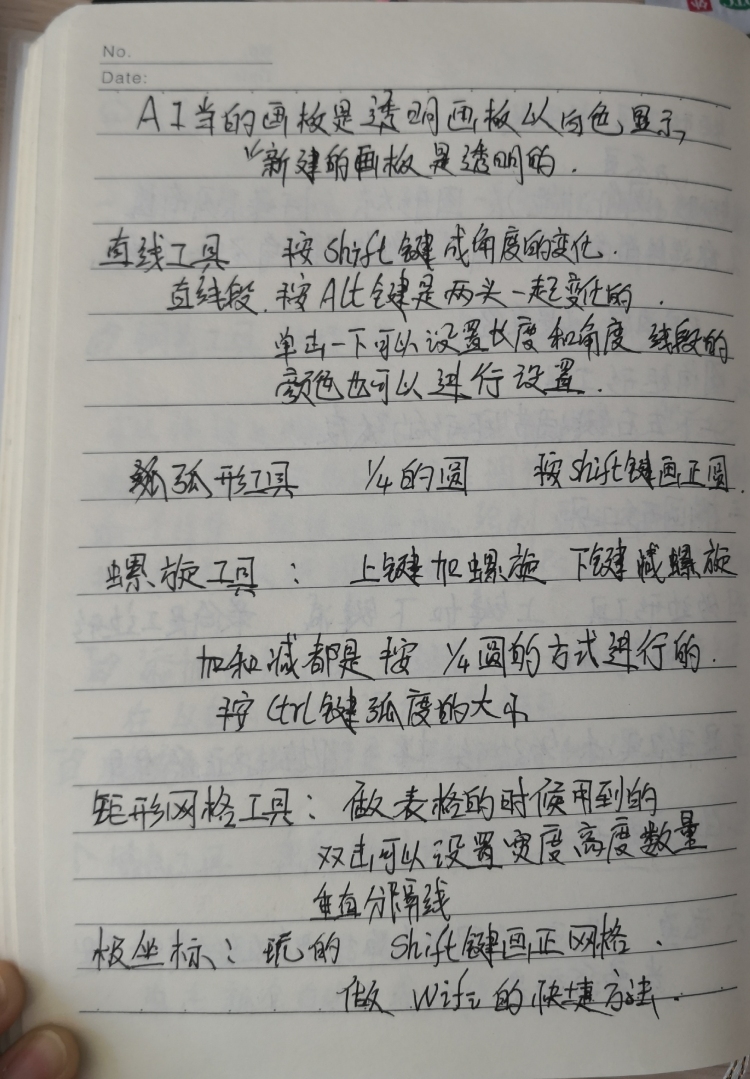 No.
Date:
AI当的画板是透明画板以白色显示,
新建的画板是透明的.
直线工具 按Shift键成角度的变化.
直线段.按Alt键是两头一起变化的.
单击一下可以设置长度和角度 线段的
颜色也可以进行设置.
弧形工具 1/4的圆 按Shift键画正圆
螺旋工具: 上键加螺旋 下键减螺旋
加和减都是按 1/4圆的方式进行的.
按Ctrl键弧度的大小
矩形网格工具: 做表格的时候用到的
双击可以设置宽度高度数量
垂直分隔线
极坐标: 的 Shift键画正网格.
做Wifi的快捷方法.